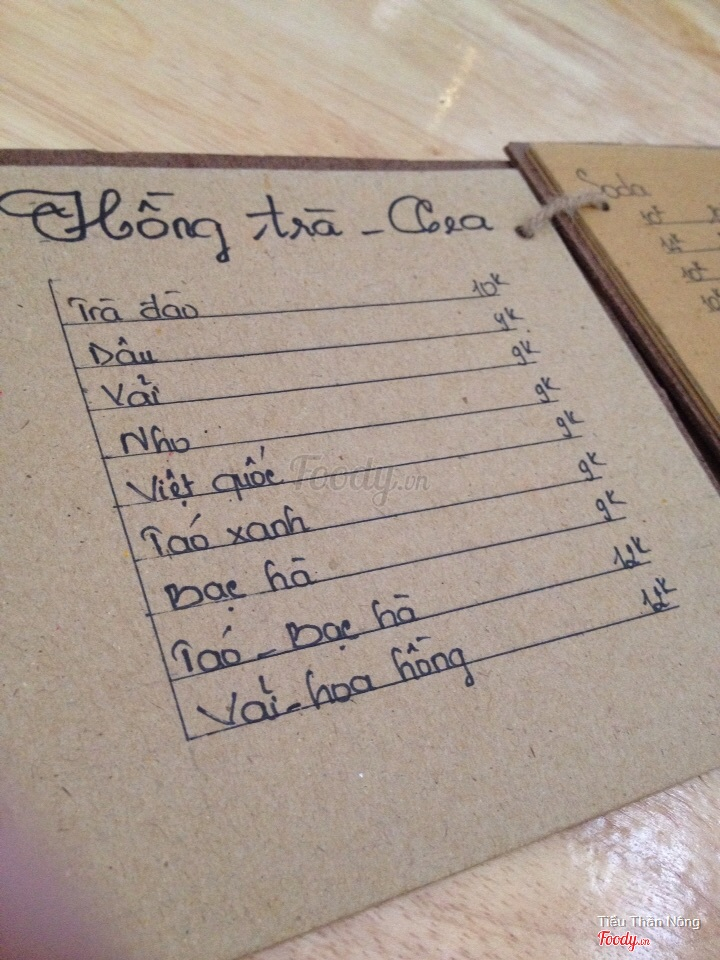 Hồng trà - Cera
Trà đào 10k
Dâu 9k
Vải 9k
Nho 9k
Việt quốc 9k
Táo xanh 9k
Bạc hà 9k
Táo - Bạc hà 12k
Vải - hoa hồng 12k
Soda
Foody.vn
Tiểu Thần Nông
Foody.vn